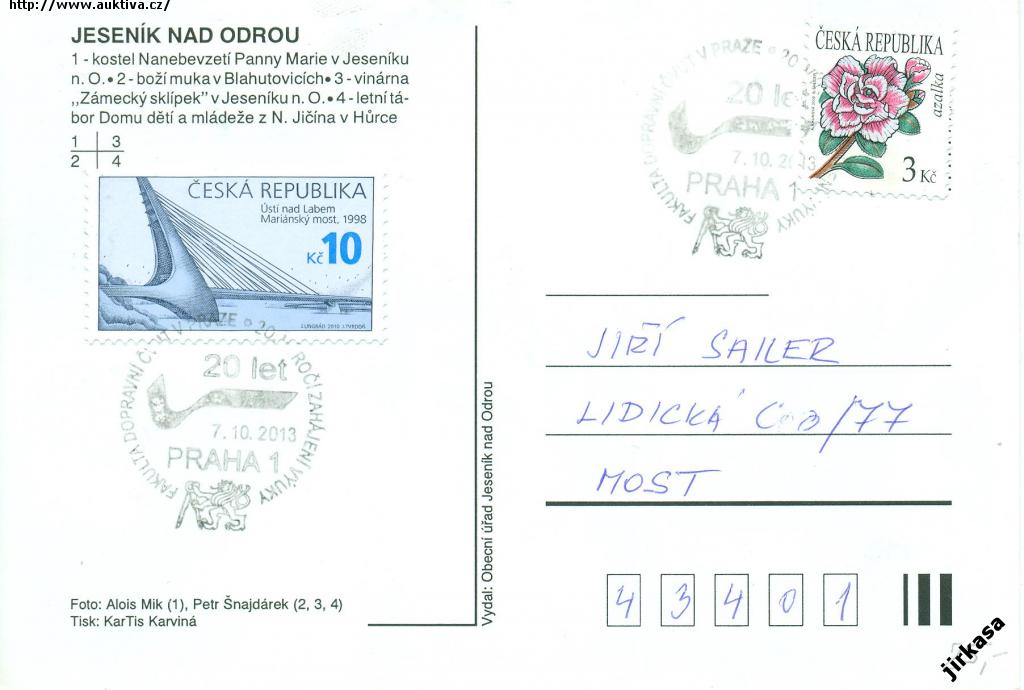 http://www.auktiva.cz/
JESENÍK NAD ODROU
1 - kostel Nanebevzetí Panny Marie v Jeseníku
n. O.• 2 - boží muka v Blahutovicích• 3 - vinárna
„Zámecký sklípek" v Jeseníku n. O.• 4 - letní tá-
bor Domu dětí a mládeže z N. Jičína v Hůrce
1 3
2 4
ČESKÁ REPUBLIKA
Ústí nad Labem
Mariánský most, 1998
Kč 10
FAKULTA DOPRAVNÍ ČVUT V PRAZE • 20. VÝROČÍ ZAHÁJENÍ VÝUKY
20 let
7. 10. 2013
PRAHA 1
Foto: Alois Mik (1), Petr Šnajdárek (2, 3, 4)
Tisk: KarTis Karviná
Vydal: Obecní úřad Jeseník nad Odrou
FAKULTA DOPRAVNÍ ČVUT V PRAZE • 20. VÝUKY
20 let
7. 10. 2013
PRAHA 1
ČESKÁ REPUBLIKA
azalka
3 Kč
JIŘÍ SAILER
LIDICKÁ /77
MOST
4 3 4 0 1
jirkasa